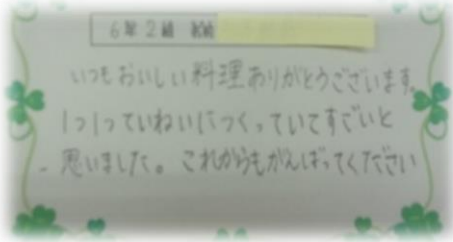 6年2組
いつもおいしい料理ありがとうございます。
1つ1っていねいにつくっていてすごいと
思いました。これからもがんばってください